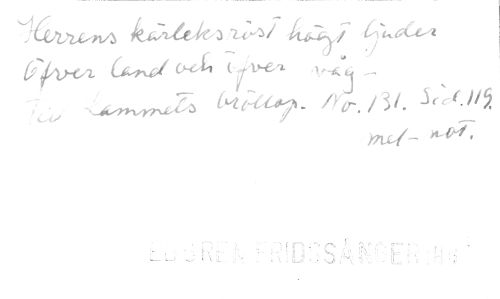 Herrens kärleksröst högt ljuder
Öfver land och öfver våg –
Till Lammets bröllop. No. 131. Sid. 119.
mel – not.
FRIDSSÅNGER